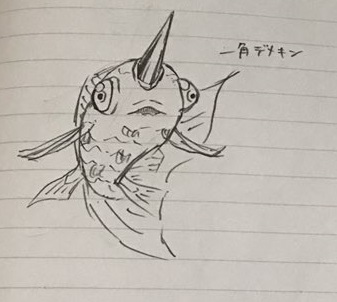 一角デメキン